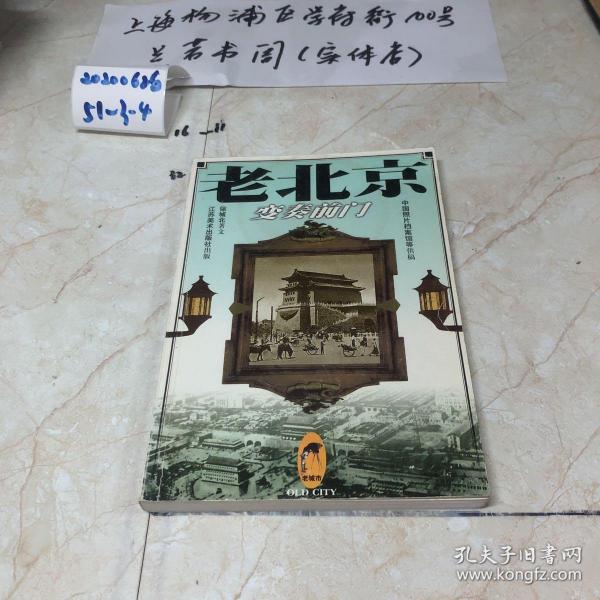 上海杨浦区学府街100号
兰若书阁(实体店)
20200626
51-3-4
16-11
老北京
变奏前门
徐城北著文
江苏美术出版社出版
中国照片档案馆等供稿
老城市
OLD CITY
孔夫子旧书网
www.kongfz.com